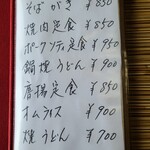 そばがき ¥850
焼肉定食 ¥850
ポークソティ定食 ¥950
鍋焼うどん ¥900
唐揚定食 ¥850
オムライス ¥900
焼うどん ¥700